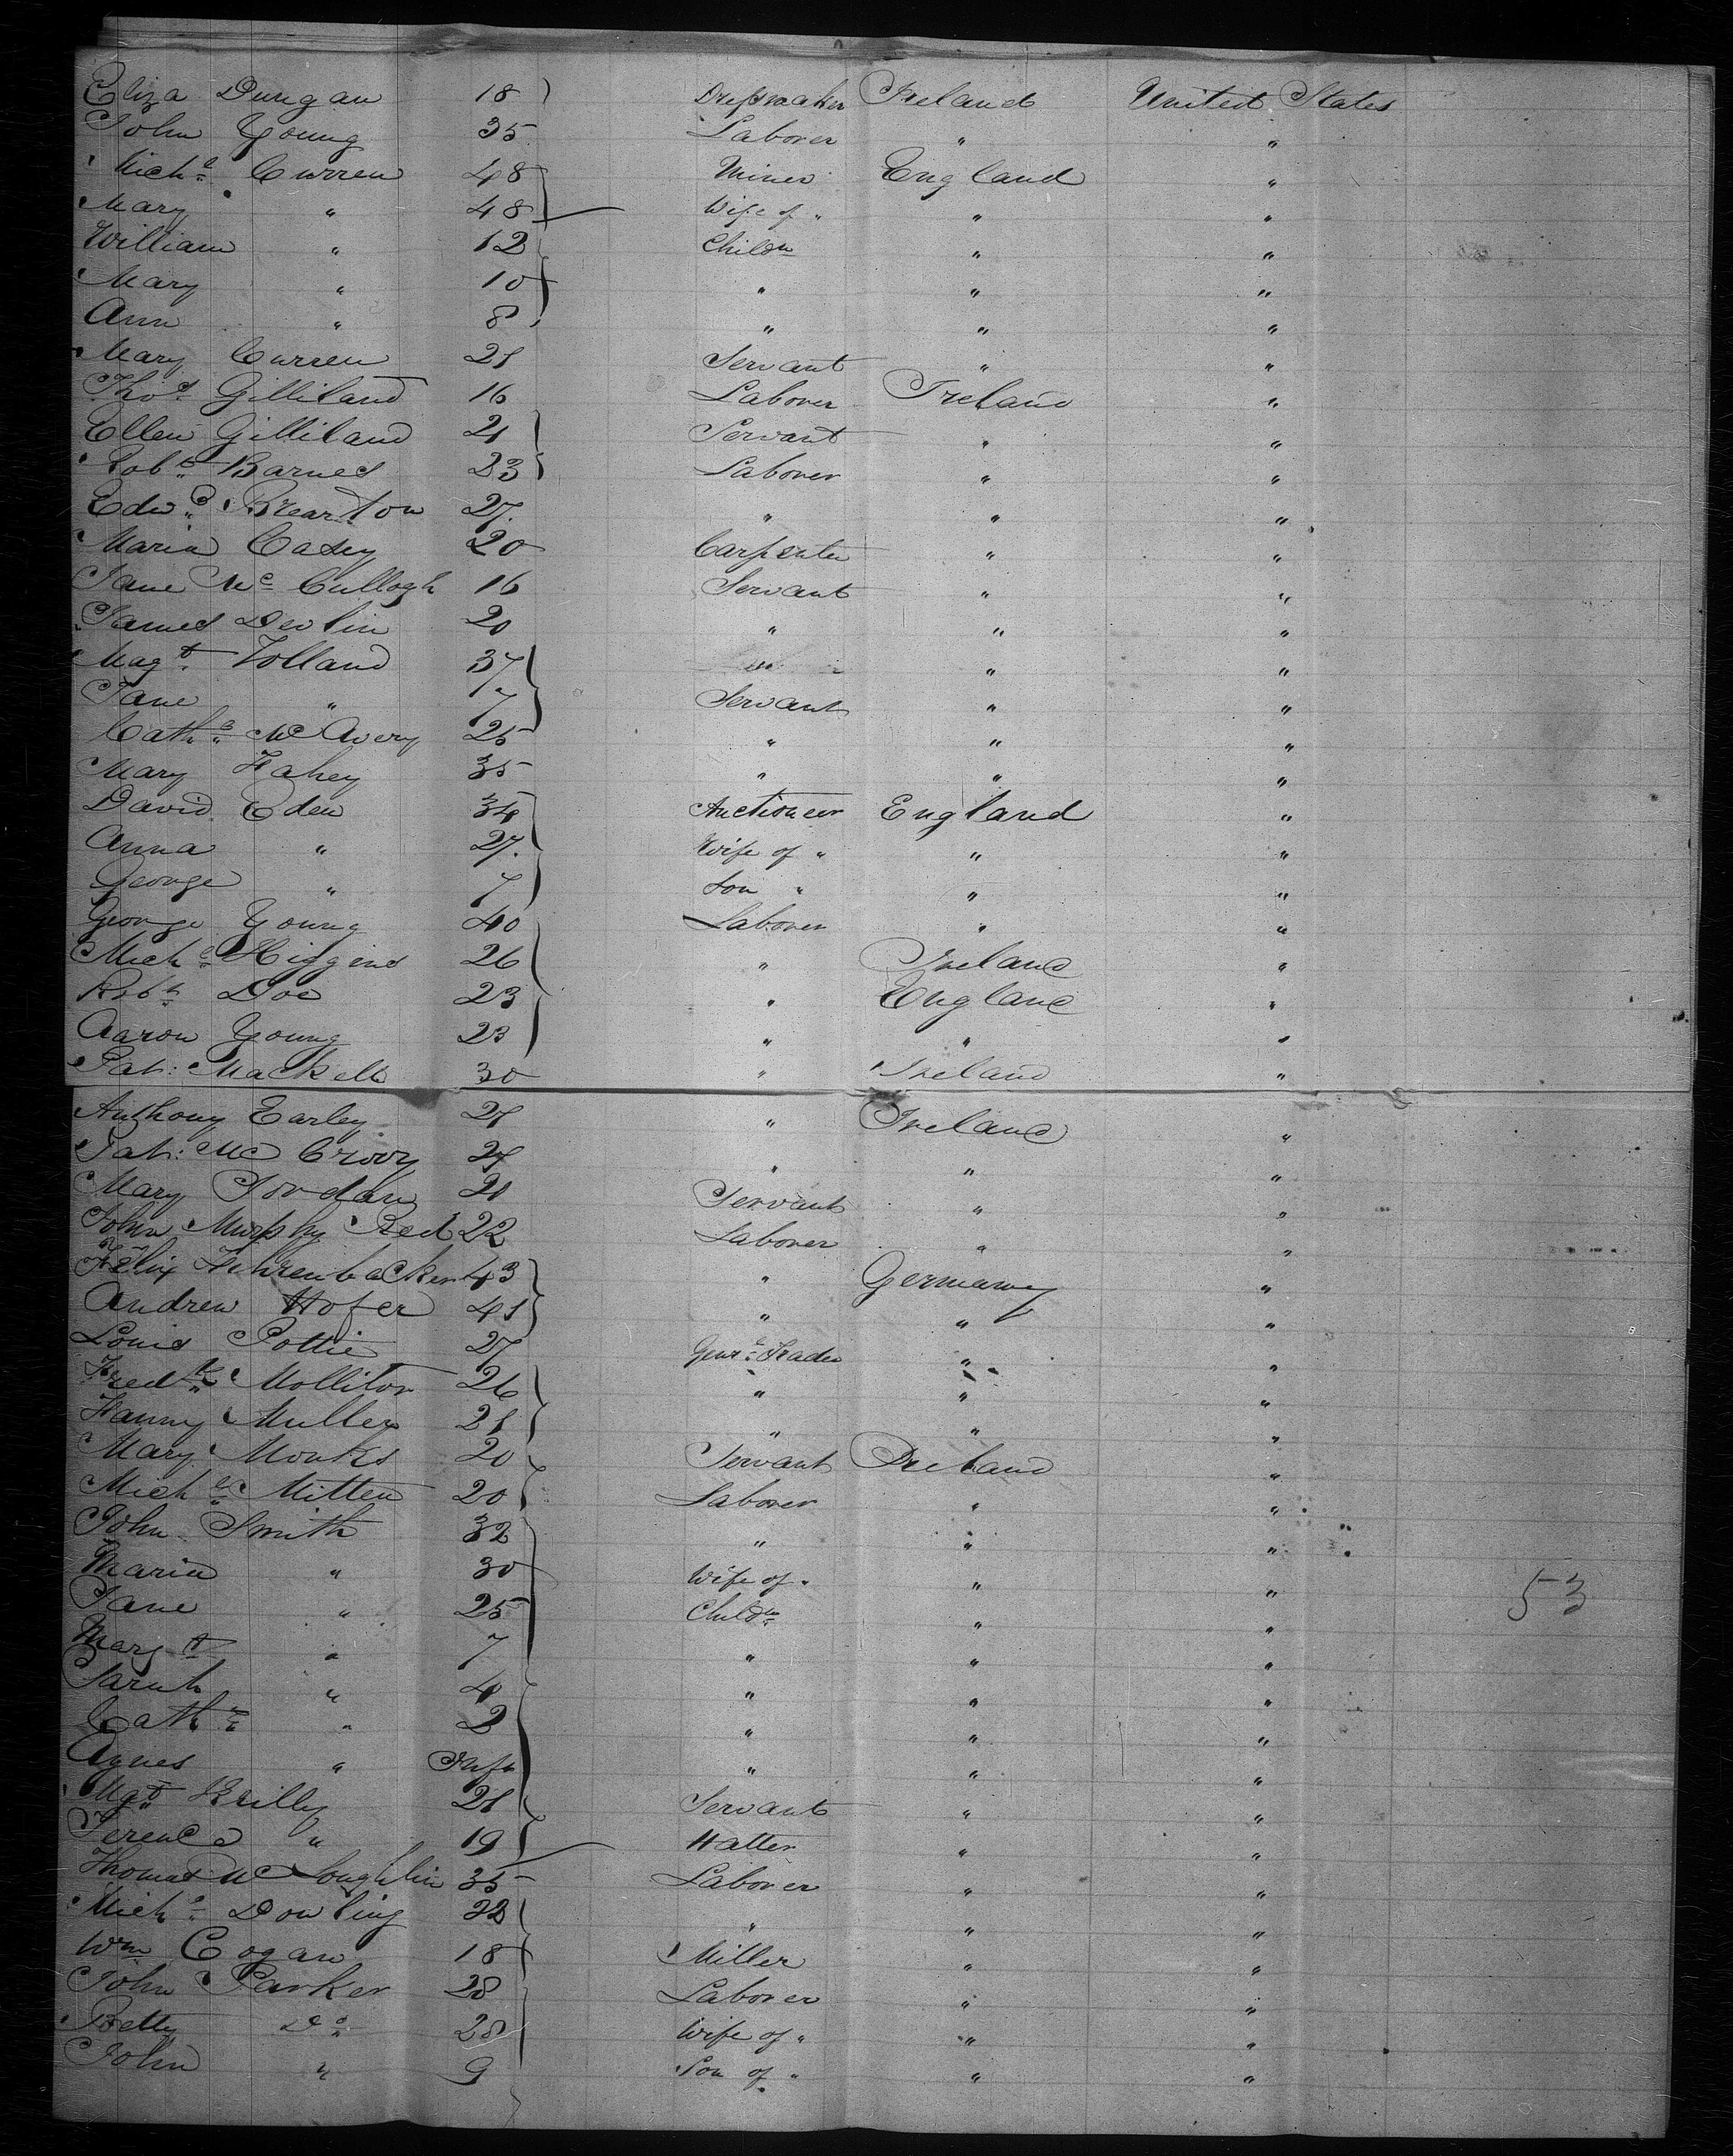 Eliza Dungan 18 Dressmaker Ireland United States
John Young 35 Laborer " "
Michl Curren 48 Miner England "
Mary " 48 Wife of " " "
William " 12 Childn " "
Mary " 10 " " "
Ann " 8 " " "
Mary Curren 21 Servant " "
Thos Gilliland 16 Laborer Ireland "
Ellen Gilliland 21 Servant " "
Robt Barnes 23 Laborer " "
Edwd Brearton 27 " " "
Maria Casey 20 Carpenter " "
Jane Mc Cullogh 16 Servant " "
James Devlin 20 " " "
Magt Volland 37 " "
Jane " 7 Servant " "
Cathe McAvery 25 " " "
Mary Fahey 35 " " "
David Eden 34 Auctioneer England "
Anna " 27 Wife of " " "
George " 7 Son " " "
George Young 40 Laborer " "
Michl Higgins 26 " Ireland "
Robt Doe 23 " England "
Aaron Young 23 " " "
Pat: Mackell 30 " Ireland "
Anthony Earley 27 " Ireland "
Pat: Mc Crory 27 " " "
Mary Jordan 21 Servant " "
John Murphy Red 22 Laborer " "
Felix Fehrenbacker 43 " Germany "
Andrew Hofer 41 " " "
Louis Pottie 27 Genrl Trader " "
Fredk Mollitor 26 " " "
Fanny Muller 21 " " "
Mary Monks 20 Servant Ireland "
Michl Mitten 20 Laborer " "
John Smith 32 " " "
Maria " 30 Wife of " " "
Jane " 25 Childn " "
Margt " 7 " " "
Sarah " 4 " " "
Cathe " 2 " " "
Agnes " Infn " " "
Mgt Reilly 21 Servant " "
Terence " 19 Hatter " "
Thomas McLoughlin 35 Laborer " "
Michl Dowling 22 " " "
Wm Cogan 18 Miller " "
John Parker 28 Laborer " "
Betty Do 28 Wife of " " "
John " 9 Son of " " "
53